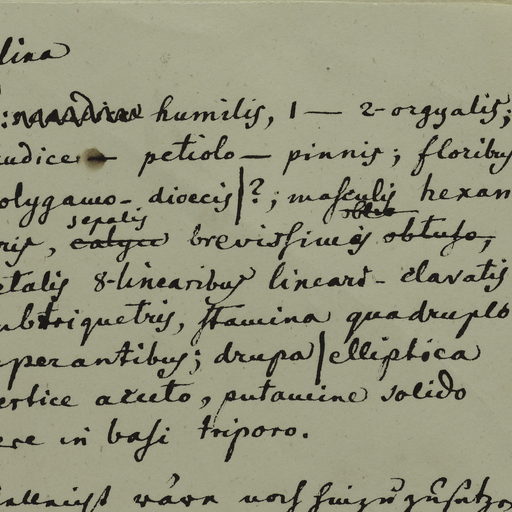 lina
humilis, 1 — 2-orgyalis;
audice — petiolo — pinnis; floribus
olygamo-dioecis|?; masculis hexan
ris, calyce sepalis brevissimis obtuso,
etalis 8-linearibus lineari-clavatis
ubtriquetris, stamina quadruplo
uperantibus; drupa|elliptica
ertice acuto, putamine solido
ere in basi triporo.
vielleicht wäre noch hinzuzusetzen